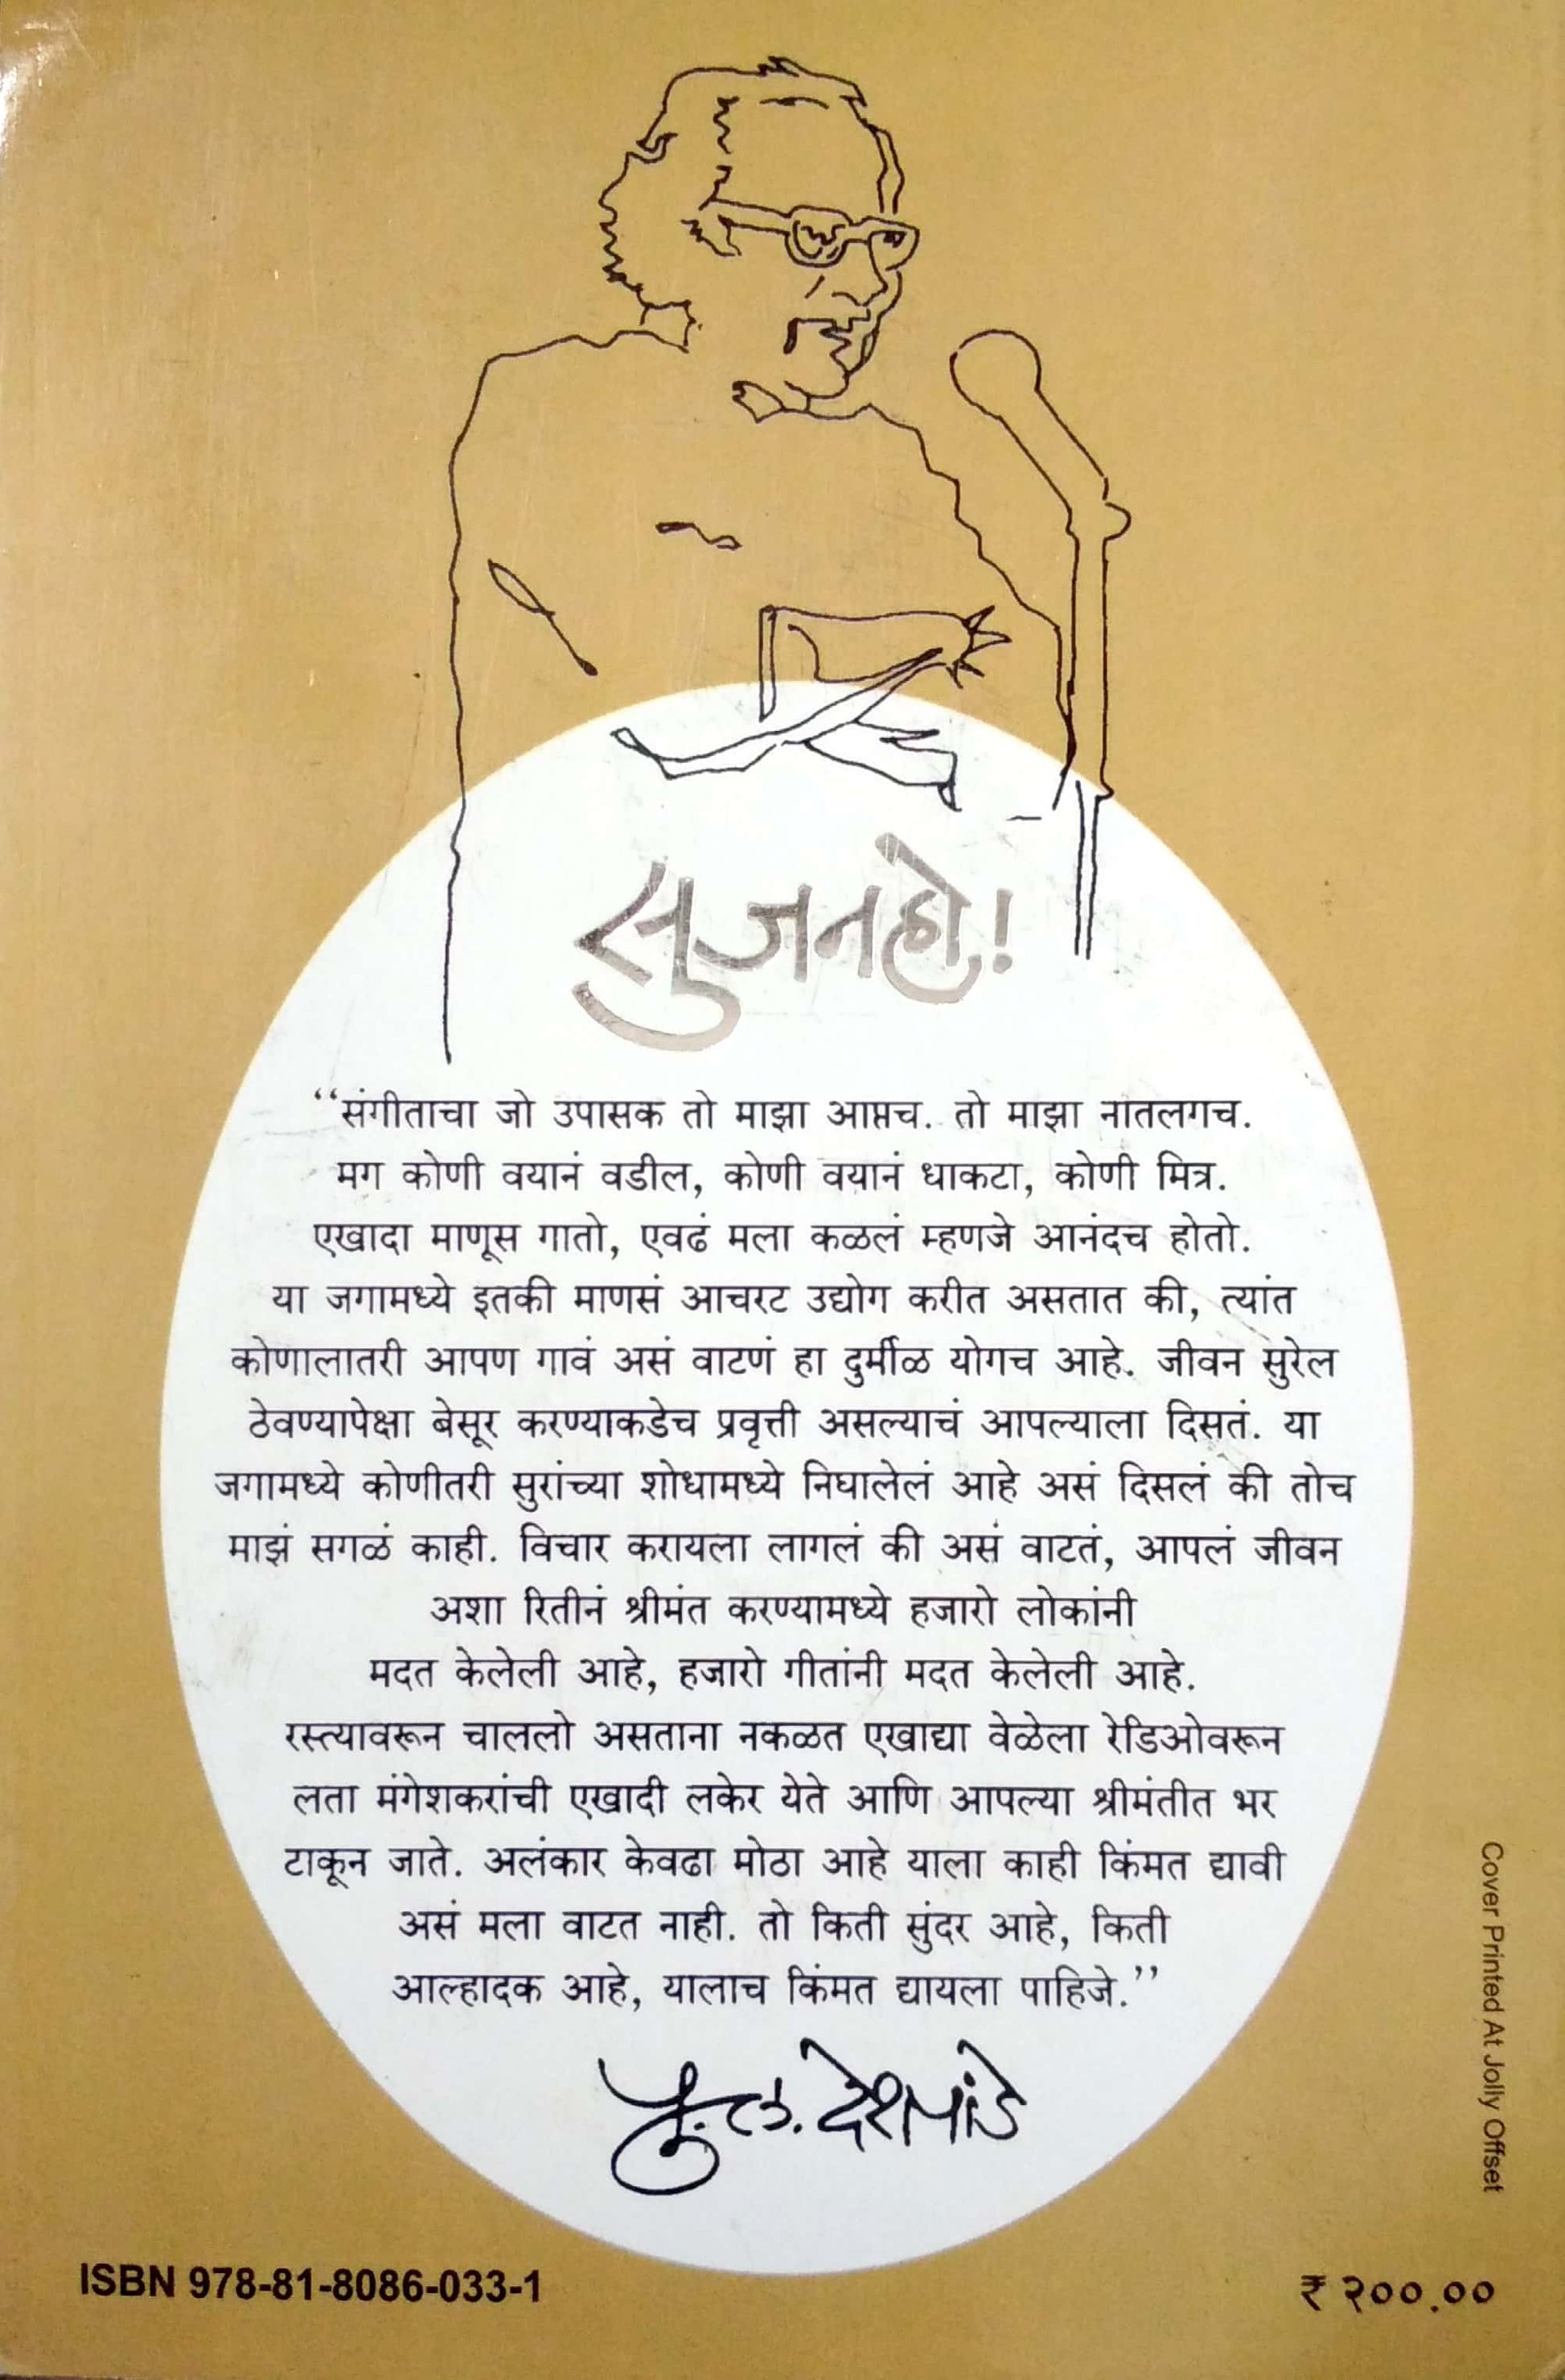 सुजनहो!
“संगीताचा जो उपासक तो माझा आप्तच. तो माझा नातलगच.
मग कोणी वयानं वडील, कोणी वयानं धाकटा, कोणी मित्र.
एखादा माणूस गातो, एवढं मला कळलं म्हणजे आनंदच होतो.
या जगामध्ये इतकी माणसं आचरट उद्योग करीत असतात की, त्यांत
कोणालातरी आपण गावं असं वाटणं हा दुर्मीळ योगच आहे. जीवन सुरेल
ठेवण्यापेक्षा बेसूर करण्याकडेच प्रवृत्ती असल्याचं आपल्याला दिसतं. या
जगामध्ये कोणीतरी सुरांच्या शोधामध्ये निघालेलं आहे असं दिसलं की तोच
माझं सगळं काही. विचार करायला लागलं की असं वाटतं, आपलं जीवन
अशा रितीनं श्रीमंत करण्यामध्ये हजारो लोकांनी
मदत केलेली आहे, हजारो गीतांनी मदत केलेली आहे.
रस्त्यावरून चाललो असताना नकळत एखाद्या वेळेला रेडिओवरून
लता मंगेशकरांची एखादी लकेर येते आणि आपल्या श्रीमंतीत भर
टाकून जाते. अलंकार केवढा मोठा आहे याला काही किंमत द्यावी
असं मला वाटत नाही. तो किती सुंदर आहे, किती
आल्हादक आहे, यालाच किंमत द्यायला पाहिजे.”
पु. ल. देशपांडे
Cover Printed At Jolly Offset
ISBN 978-81-8086-033-1
₹ २००.००